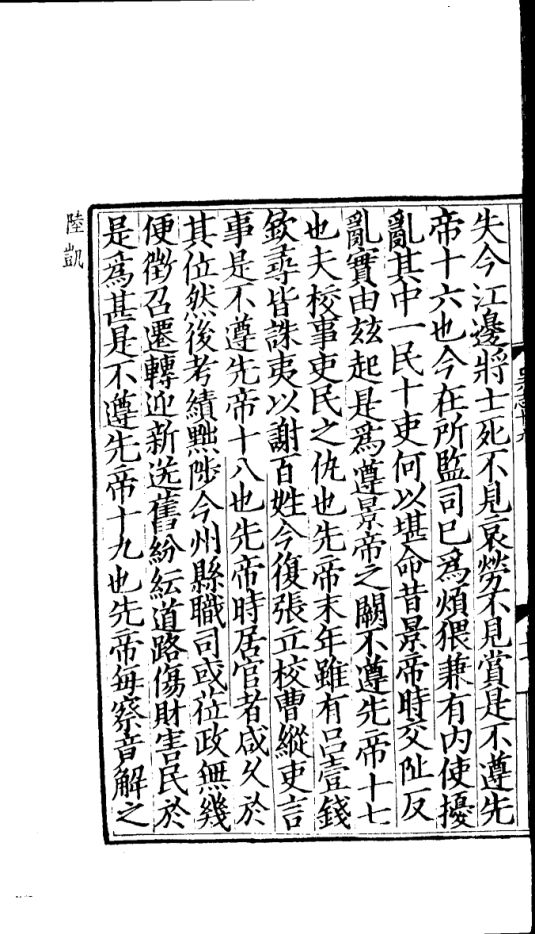 失今江邊將士死不見哀勞不見賞是不遵先
帝十六也今在所監司已爲煩猥兼有內使擾
亂其中一民十吏何以堪命昔景帝時交阯反
亂實由兹起是爲遵景帝之闕不遵先帝十七
也夫校事吏民之仇也先帝末年雖有吕壹錢
欽尋皆誅夷以謝百姓今復張立校曹縱吏言
事是不遵先帝十八也先帝時居官者咸久於
其位然後考績黜陟今州縣職司或莅政無幾
便徵召遷轉迎新送舊紛紜道路傷財害民於
是爲甚是不遵先帝十九也先帝每察音解之
陸凱